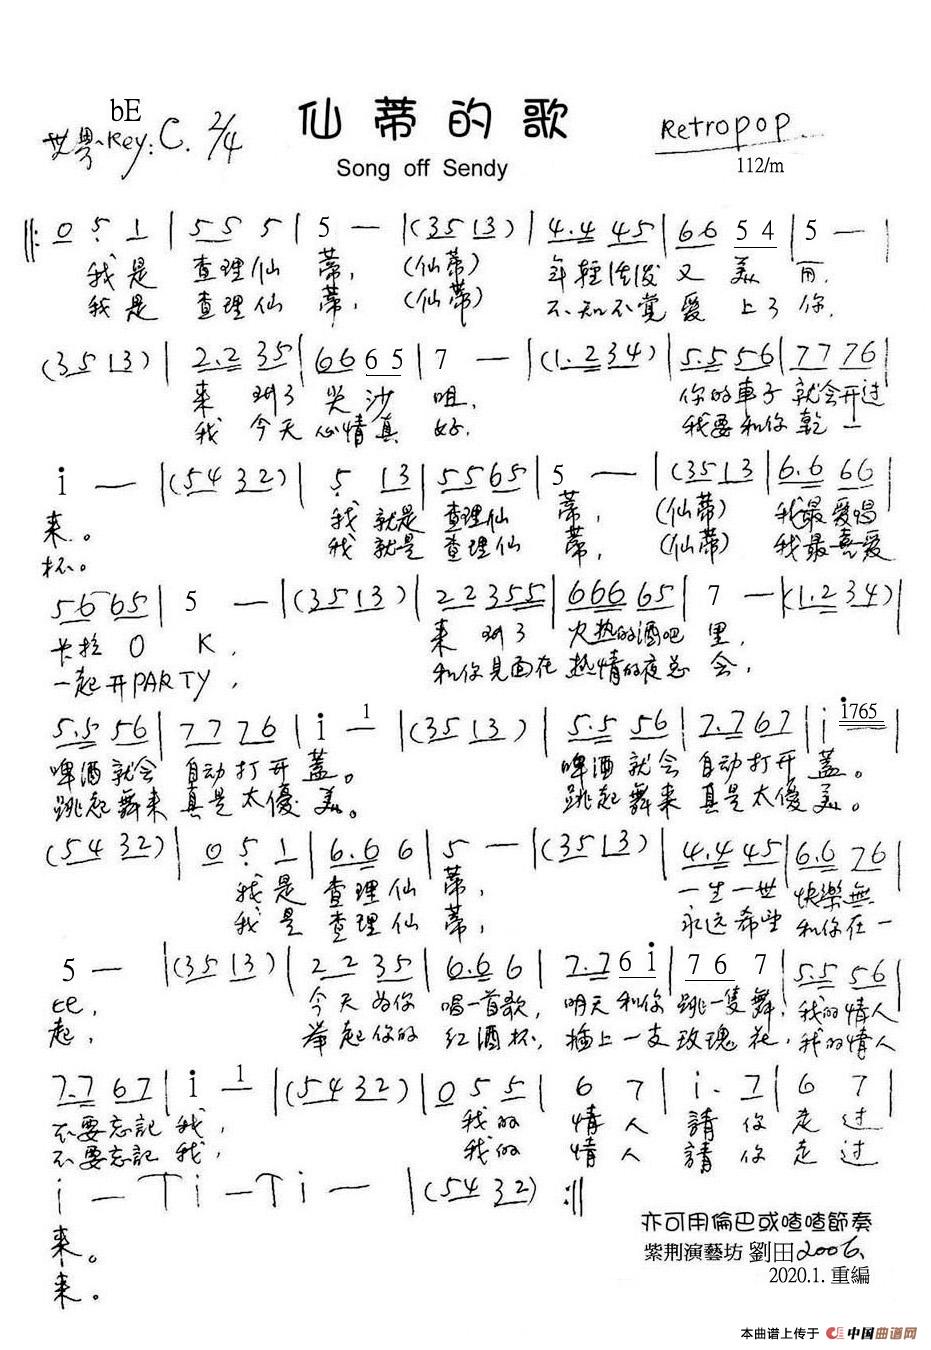 仙蒂的歌
Song off Sendy
bE
Key: C. 2/4
Retropop
112/m
‖: 0 5 1 | 5 5 5 | 5 — | (3 5 1 3) | 4. 4 4 5 | 6 6 5 4 | 5 — |
我是 查理仙 蒂, (仙蒂) 年輕活潑 又 美
我是 查理仙 蒂, (仙蒂) 不知不覺 愛 上了 你,
(3 5 1 3) | 2. 2 3 5 | 6 6 6 5 | 7 — | (1. 2 3 4) | 5. 5 5 6 | 7 7 7 6 |
來 到了 尖 沙 咀, 你的車子 就会开过
我 今天 心情真 好, 我要和你 乾一
i — | (5 4 3 2) | 5 1 3 | 5 5 6 5 | 5 — | (3 5 1 3) | 6. 6 6 6 |
來。 我 就是 查理仙 蒂, (仙蒂) 我最爱唱
杯。 我 就是 查理仙 蒂, (仙蒂) 我最喜爱
5 6 6 5 | 5 — | (3 5 1 3) | 2 2 3 5 5 | 6 6 6 6 5 | 7 — | (1. 2 3 4) |
卡拉 O K, 來 到了 火热的酒吧 里,
一起开PARTY, 和你見面在 热情的夜总 会,
5. 5 5 6 | 7 7 7 6 | i — 1 | (3 5 1 3) | 5. 5 5 6 | 7. 7 6 7 | i i765 |
啤酒就会 自动打开 蓋。 啤酒就会 自动打开 蓋。
跳起舞来 真是太優 美。 跳起舞来 真是太優 美。
(5 4 3 2) | 0 5 1 | 6. 6 6 | 5 — | (3 5 1 3) | 4. 4 4 5 | 6. 6 7 6 |
我是 查理仙 蒂, 一生一世 快樂無
我是 查理仙 蒂, 永远希望 和你在一
5 — | (3 5 1 3) | 2 2 3 5 | 6. 6 6 | 7. 7 6 i | 7 6 7 | 5. 5 5 6 |
比, 今天为你 唱一首歌, 明天和你 跳一隻舞, 我的情人
起, 举起你的 红酒杯, 插上一支 玫瑰花, 我的情人
7. 7 6 7 | i 1 | (5 4 3 2) | 0 5 5 | 6 7 | i. 7 | 6 7 |
不要忘記 我, 我的 情人 請你 走过
不要忘記 我, 我的 情人 請你 走过
i — | i — | i — | (5 4 3 2) :‖
来。
来。
亦可用倫巴或喳喳節奏
紫荆演藝坊 劉田2006.
2020.1. 重編
本曲谱上传于 中国曲谱网